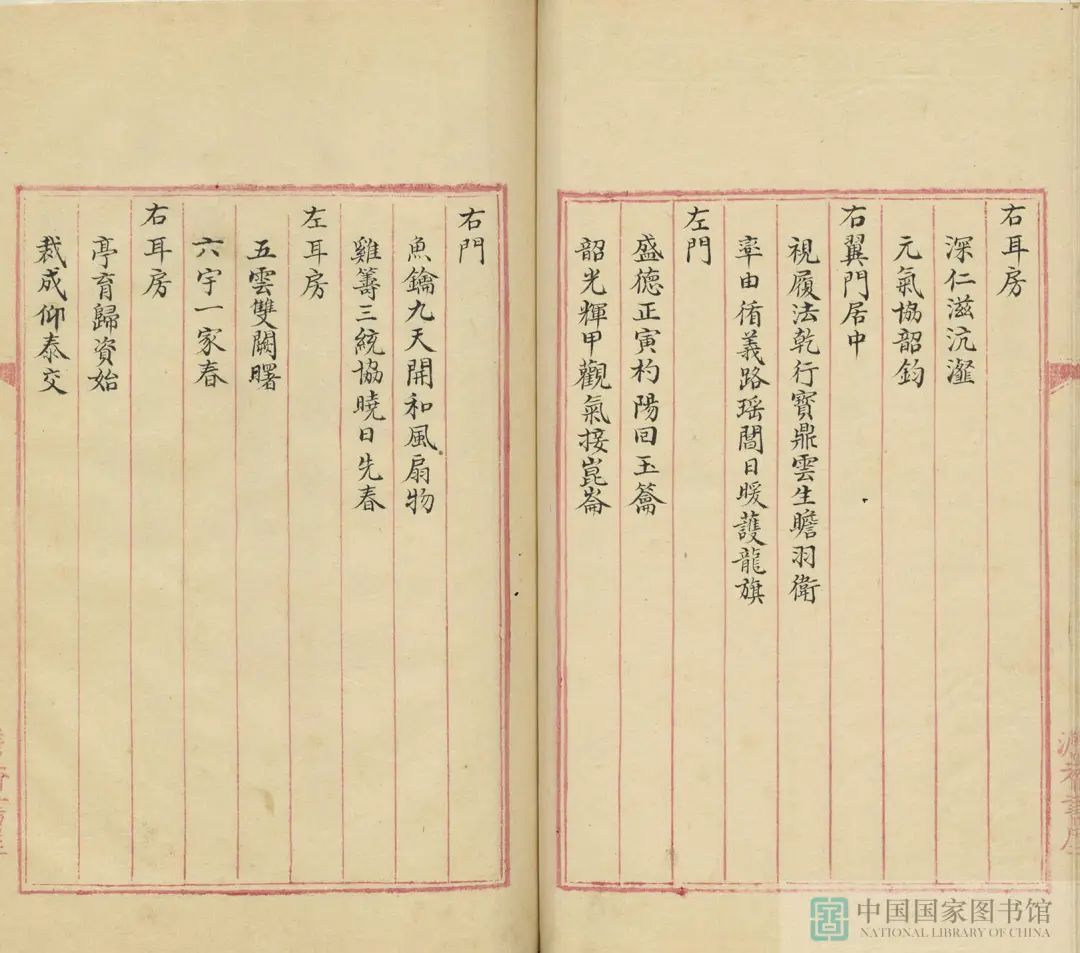 右耳房
深仁滋沆瀣
元氣協韶鈞
右翼門居中
視履法乾行寶鼎雲生瞻羽衛
率由循義路瑶閶日暖護龍旗
左門
盛德正寅杓陽回玉籥
韶光輝甲觀氣接崑崙
右門
魚鑰九天開和風扇物
雞籌三統協曉日先春
左耳房
五雲雙闕曙
六宇一家春
右耳房
亭育歸資始
裁成仰泰交
中国国家图书馆
NATIONAL LIBRARY OF CHINA